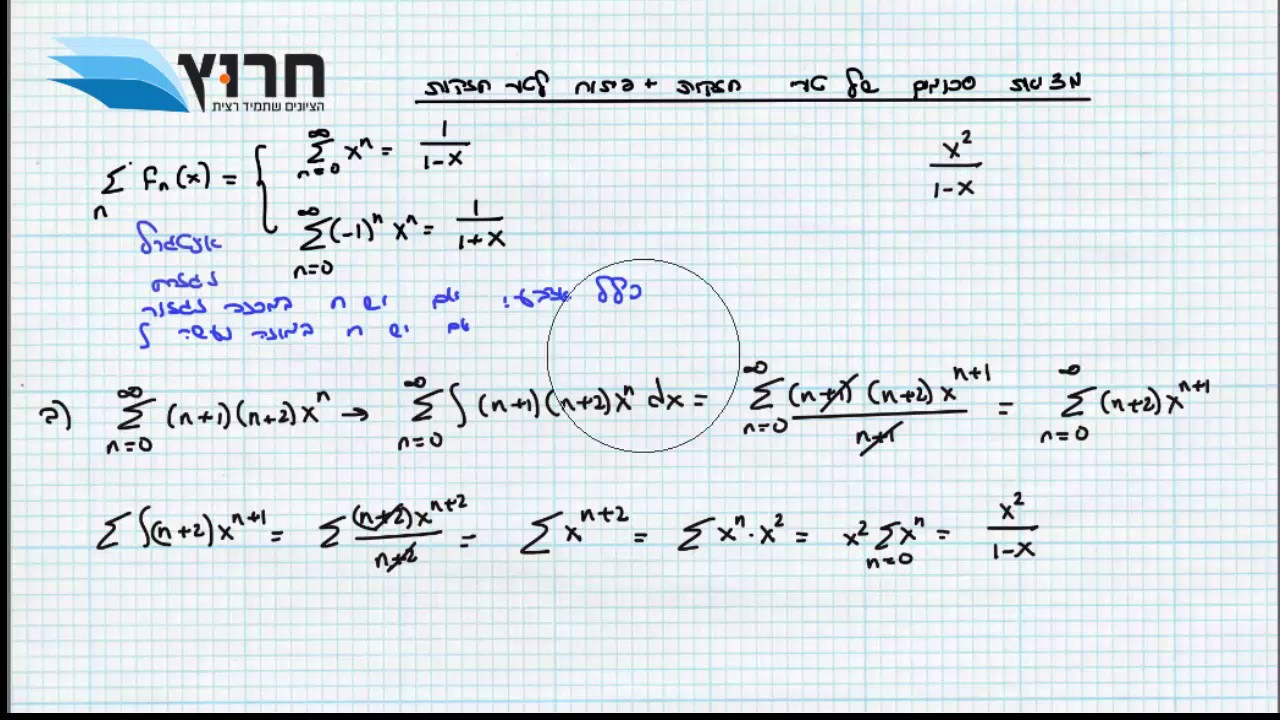 חרוץ
הציונים שתמיד רצית
מציאת סכומים של טורי חזקות + פיתוח לטור חזקות
\sum_n f_n(x) = { \sum_{n=0}^{∞} x^n = \frac{1}{1-x}
\sum_{n=0}^{∞} (-1)^n x^n = \frac{1}{1+x}
\frac{x^2}{1-x}
אינטגרל
נגזרת
כלל אצבע: אם יש n במכנה נגזור
אם יש n במונה נעשה ∫
ב) \sum_{n=0}^{∞} (n+1)(n+2)x^n → \sum_{n=0}^{∞} ∫(n+1)(n+2)x^n dx = \sum_{n=0}^{∞} \frac{(n+1)(n+2)x^{n+1}}{n+1} = \sum_{n=0}^{∞} (n+2)x^{n+1}
\sum ∫(n+2)x^{n+1} = \sum \frac{(n+2)x^{n+2}}{n+2} = \sum x^{n+2} = \sum x^n · x^2 = x^2 \sum_{n=0} x^n = \frac{x^2}{1-x}